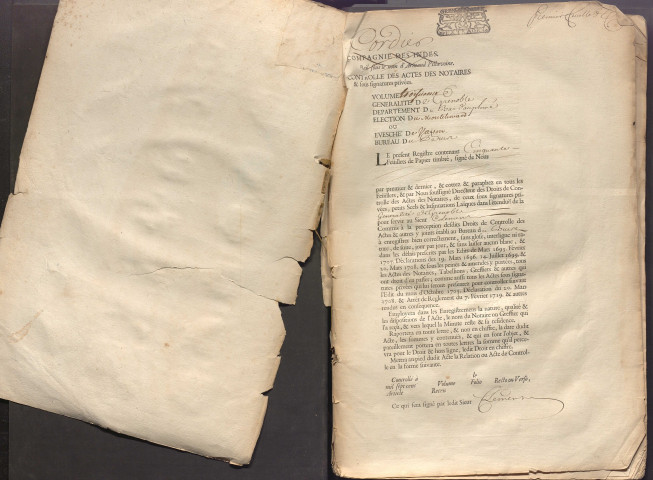 Cordier
COMPAGNIE DES INDES,
sous le nom d'Armand Pillavoine.
CONTROLLE DES ACTES DES NOTAIRES
& sous signatures privées.
VOLUME
GENERALITÉ De Grenoble
DEPARTEMENT Du Bas Dauphiné
ELECTION De Montelimard
OU
EVESCHÉ De
BUREAU De
LE present Registre contenant Cinquante
Feüillets de Papier timbré, signé de Nous
par premier & dernier, & cottez & paraphez en tous les
Feüillets, & par Nous soussigné Directeur des Droits de Con-
trolle des Actes des Notaires, de ceux sous signatures pri-
vées, petits Scels & Insinuations Laïques dans l'étenduë de la
Generalité de Grenoble
pour servir au Sieur
Commis à la perception desdits Droits de Controlle des
Actes & autres y joints établi au Bureau
à enregistrer bien correctement, sans glose, interligne ni ra-
ture, de suite, jour par jour, & sans laisser aucun blanc, &
dans les délais prescrits par les Edits de Mars 1693. Février
1707. Déclarations des 19. Mars 1696. 14. Juillet 1699. &
20. Mars 1708. & sous les peines & amendes y portées, tous
les Actes des Notaires, Tabellions, Greffiers & autres qui
ont droit d'en passer; comme aussi tous les Actes sous signa-
tures privées qui lui seront presentez pour controller suivant
l'Edit du mois d'Octobre 1705. Déclaration du 20. Mars
1708. & Arrêt de Reglement du 7. Février 1719. & autres
rendus en consequence.
Employera dans les Enregistremens la nature, qualité &
les dispositions de l'Acte, le nom du Notaire ou Greffier qui
l'a reçû, & vers lequel la Minute reste & sa residence.
Raportera en toute lettre, & non en chiffre, la date dudit
Acte, les sommes y contenuës, & qui en font l'objet, &
pareillement portera en toutes lettres la somme qu'il perce-
vra pour le Droit & hors ligne, ledit Droit en chiffre.
Mettra au pied dudit Acte la Relation ou Acte de Control-
le en la forme suivante.
Controllé à le
mil sept cent Volume Folio Recto ou Verso,
Article Receu
Ce qui sera signé par ledit Sieur